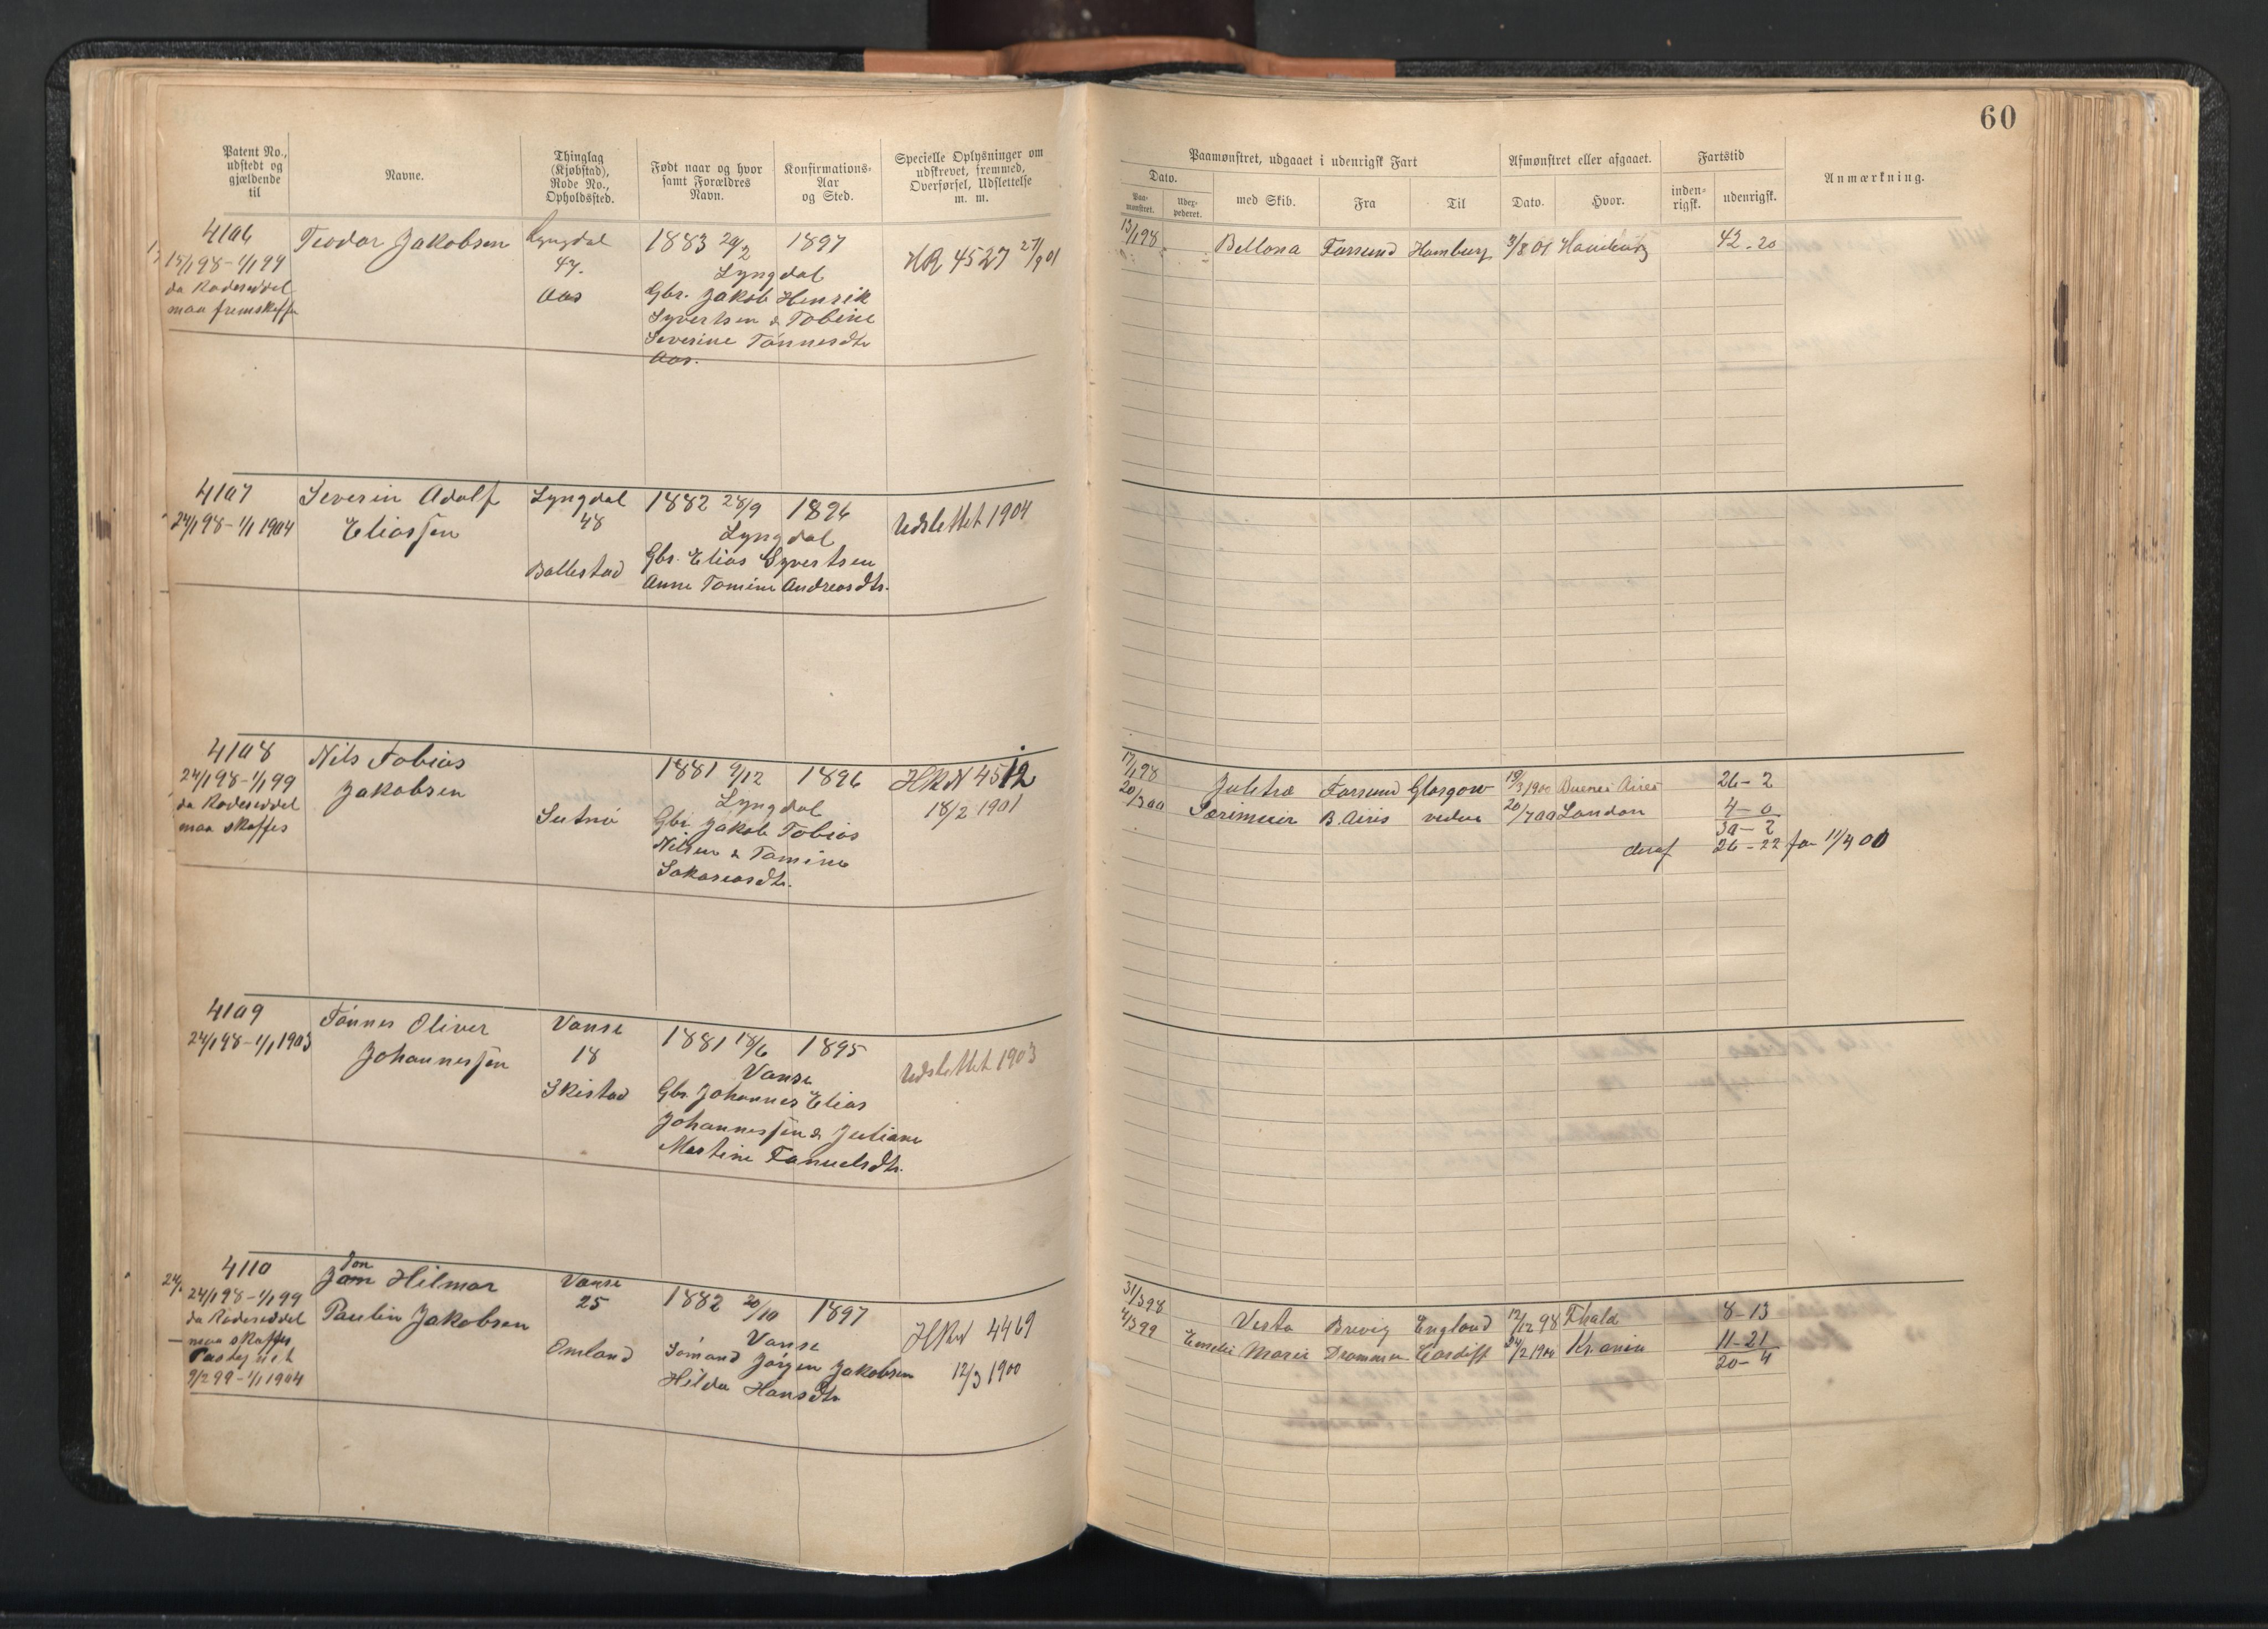 60
Patent No., udstedt og gjældende til
Navne.
Thinglag (Kjøbstad), Rode No., Opholdssted.
Født naar og hvor samt Forældres Navn.
Konfirmations-Aar og Sted.
Specielle Oplysninger om udskrevet, fremmed, Overførsel, Udslettelse m. m.
Paamønstret, udgaaet i udenrigsk Fart
Dato.
Paa-mønstret.
Udex-pederet.
med Skib.
Fra
Til
Afmønstret eller afgaaet.
Dato.
Hvor.
Fartstid
inden-rigsk.
udenrigsk.
Anmærkning.
4106
15/1 98 - 1/1 99
da Rodeseddel
maa fremskaffes
Teodor Jakobsen
Lyngdal
47.
Aas
1883 20/2 1897
Lyngdal
Gbr. Jakob Henrik
Syvertsen & Tobine
Severine Tönnesdtr
Aas.
HR 4527 27/9 01
13/1 98 Bellona Farsund Hamburg 3/8 01 Hamburg 42 - 20
4107
24/1 98 - 1/1 1904
Severin Adolf
Eliassen
Lyngdal
48
Ballestad
1882 28/9 1896
Lyngdal
Gbr. Elias Syvertsen
Anne Tomine Andreasdtr.
Udslettet 1904
4108
24/1 98 - 1/1 99
da Rodeseddel
maa skaffes
Nils Tobias
Jakobsen
1881 9/12 1896
Lyngdal
Gbr Jakob Tobias
Nilsen & Tomine
Sakariasdtr.
HRN 4512
18/2 1901
17/1 98 Juletræ Farsund Glasgow 19/3 1900 Buenos Aires 26 - 2
20/3 00 B. Aires videre 20/7 00 London 4 - 0
30 - 2
deraf 26 - 22 før 11/4 00
4109
24/1 98 - 1/1 1903
Tönnes Oliver
Johannessen
Vanse
18
Skistad
1881 18/6 1895
Vanse
Gbr. Johannes Elias
Johannessen & Juliane
Martine Tanuelsdtr.
Udslettet 1903
4110
24/1 98 - 1/1 99
da Rodeseddel
maa skaffes
9/2 99 - 1/1 1904
Jon
Hilmar
Paulin Jakobsen
Vanse
25
Omland
1882 20/10 1897
Vanse
Sömand Jörgen Jakobsen
Hilda Hansdtr
HRN 4469
12/3 1900
31/3 98 Vesta Brevig England 12/12 98 Thala 8 - 13
4/3 99 Emelie Marie Drammen Cardiff 24/2 1900 Kr.ania 11 - 21
20 - 4